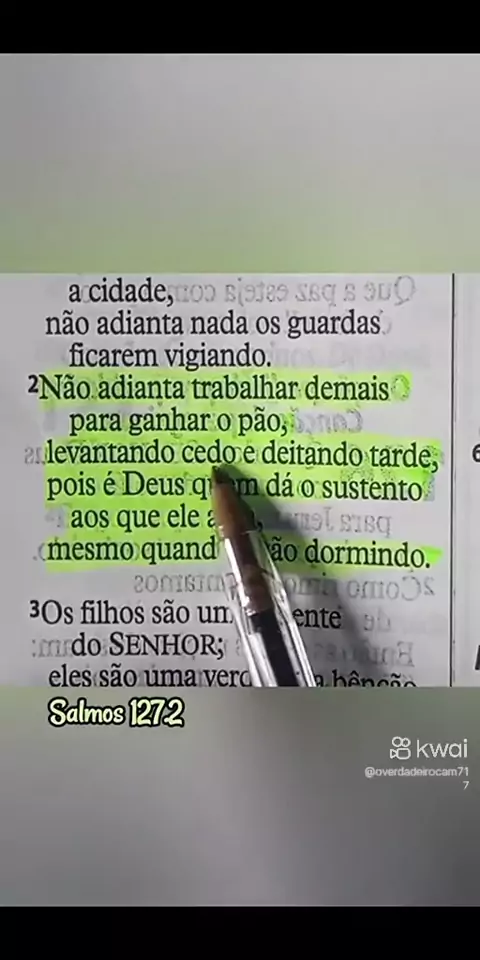 a cidade,
não adianta nada os guardas
ficarem vigiando.
2Não adianta trabalhar demais
para ganhar o pão,
levantando cedo e deitando tarde,
pois é Deus quem dá o sustento
aos que ele
mesmo dormindo.
3Os filhos são um
do SENHOR;
eles são uma bênção
Salmos 127:2
kwai
@overdadeirocam71
7